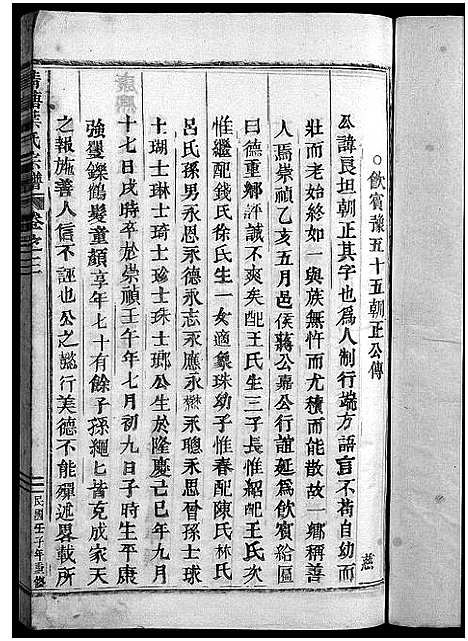 ○飲賓豫五十五朝正公傳
公諱良坦朝正其字也為人制行端方語言不苟自幼而
壯而老始終如一與族無忤而尤積而能散故一鄉稱善
人焉崇禎乙亥五月邑侯蔣公嘉公行誼延為飲賓給匾
曰德重鄉評誠不爽矣配王氏生三子長惟紹配王氏次
惟繼配錢氏徐氏生一女適象珠幼子惟春配陳氏林氏
呂氏孫男永恩永德永志永應永懋永聰永思晉孫士球
士瑚士琳士琦士珍士珠士瑯公生於隆慶己巳年九月
十七日戌時卒於崇禎壬午年七月初九日子時生平康
強矍鑠鶴髮童顏享年七十有餘子孫繩匕皆克成家天
之報施善人信不誣也公之懿行美德不能殫述畧載所
慈
氏宗譜
卷之二
民國壬子年重修